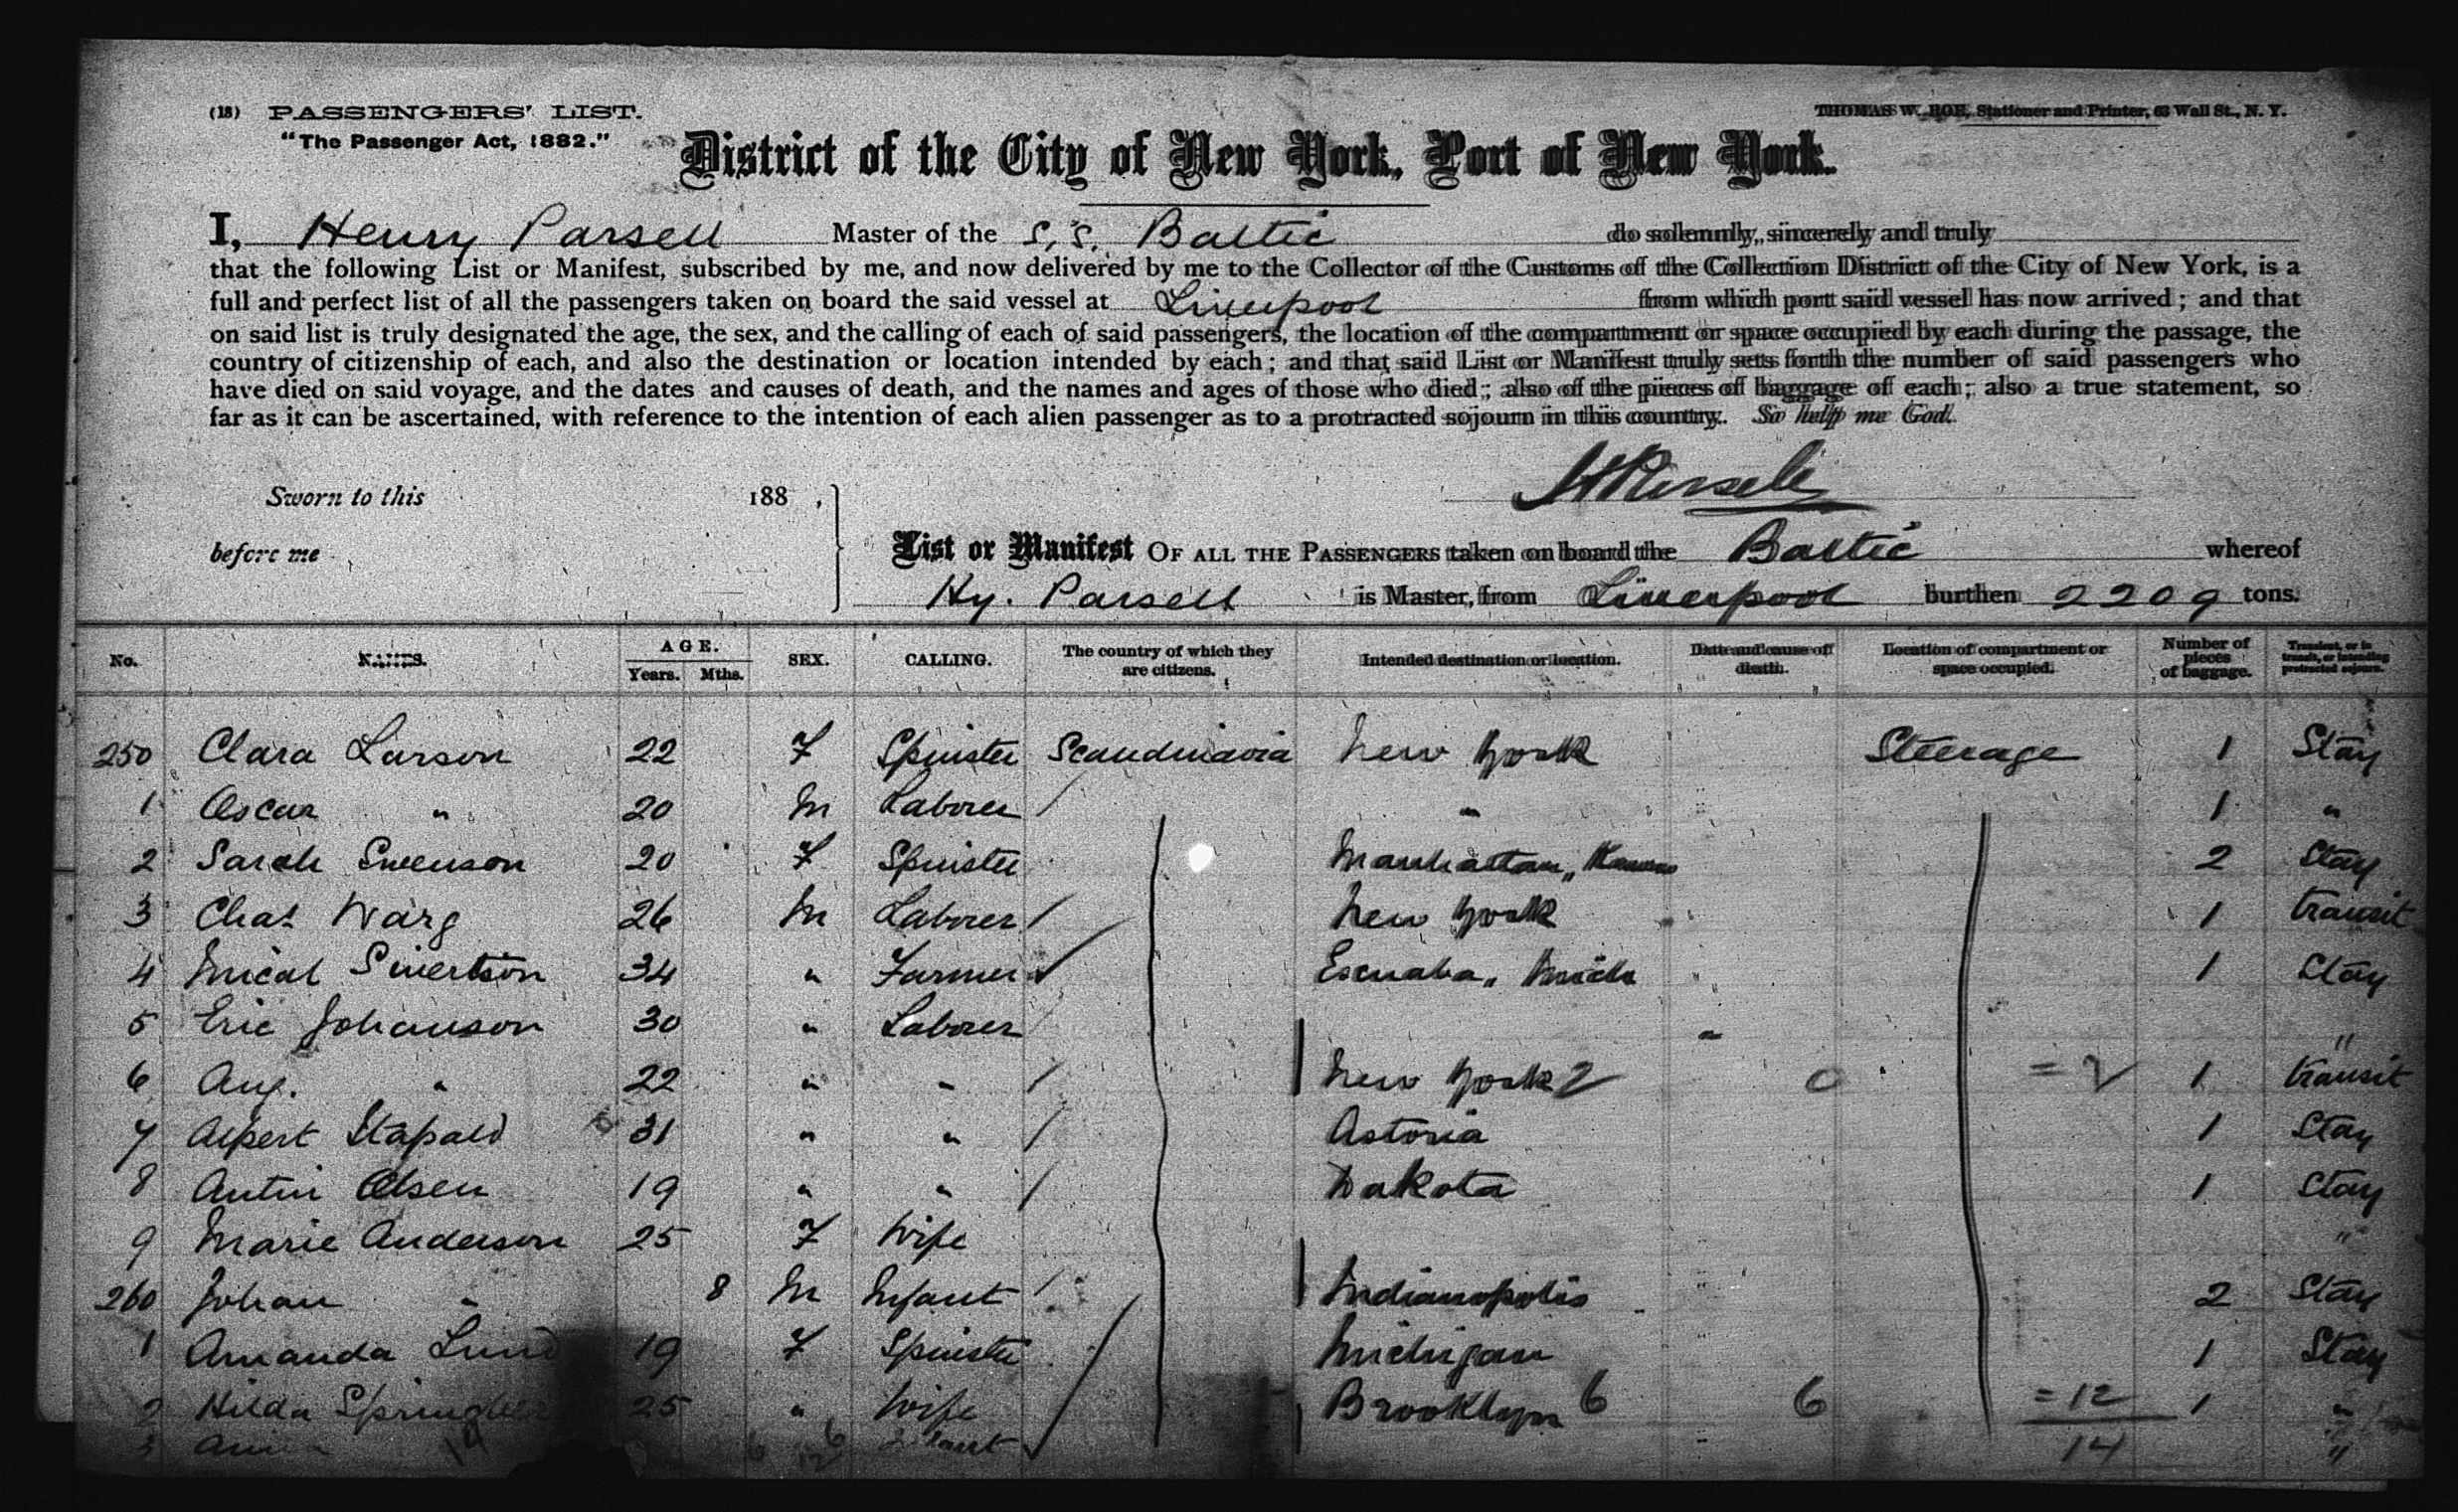 (18) PASSENGERS' LIST.
THOMAS W. ROE, Stationer and Printer, 63 Wall St., N. Y.
"The Passenger Act, 1882."
District of the City of New York, Port of New York.
I, Henry Parsell Master of the S.S. Baltic do solemnly, sincerely and truly
that the following List or Manifest, subscribed by me, and now delivered by me to the Collector of the Customs of the Collection District of the City of New York, is a
full and perfect list of all the passengers taken on board the said vessel at Liverpool from which port said vessel has now arrived; and that
on said list is truly designated the age, the sex, and the calling of each of said passengers, the location of the compartment or space occupied by each during the passage, the
country of citizenship of each, and also the destination or location intended by each; and that said List or Manifest truly sets forth the number of said passengers who
have died on said voyage, and the dates and causes of death, and the names and ages of those who died; also of the pieces of baggage of each; also a true statement, so
far as it can be ascertained, with reference to the intention of each alien passenger as to a protracted sojourn in this country. So help me God.
HParsell
Sworn to this 188 ,
before me
List or Manifest OF ALL THE PASSENGERS taken on board the Baltic whereof
Hy. Parsell is Master, from Liverpool burthen 2209 tons.
No. NAMES. AGE. Years. Mths. SEX. CALLING. The country of which they are citizens. Intended destination or location. Date and cause of death. Location of compartment or space occupied. Number of pieces of baggage. Transient, or in transit, or intending protracted sojourn.
250 Clara Larson 22 F Spinster Scandinavia New York Steerage 1 Stay
1 Oscar " 20 M Laborer / " 1 "
2 Sarah Swenson 20 F Spinster Manhattan, Kansas 2 Stay
3 Chas Warg 26 M Laborer / New York 1 transit
4 Mical Sivertson 34 " Farmer Escnaba, Mich 1 Stay
5 Eric Johanson 30 " Laborer " "
6 Aug. " 22 " " / New York 2 0 = 2 1 transit
7 Alpert Stapald 31 " " / Astoria 1 Stay
8 Antin Olsen 19 " " / Dakota 1 Stay
9 Marie Anderson 25 F Wife "
260 Johan " 8 M Infant / Indianopolis 2 Stay
1 Amanda Lund 19 F Spinster Michigan 1 Stay
2 Hilda 25 " Wife Brooklyn 6 6 = 12 1 "
3 Anna 14 "